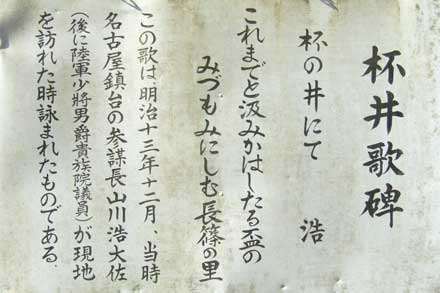 杯井歌碑
杯の井にて　　浩
これまでと汲みかはしたる盃の
みづもみにしむ長篠の里
この歌は、明治十三年十二月、当時
名古屋鎮台の参謀長山川浩大佐
（後に陸軍少將男爵貴族院議員）が現地
を訪れた時詠まれたものである。